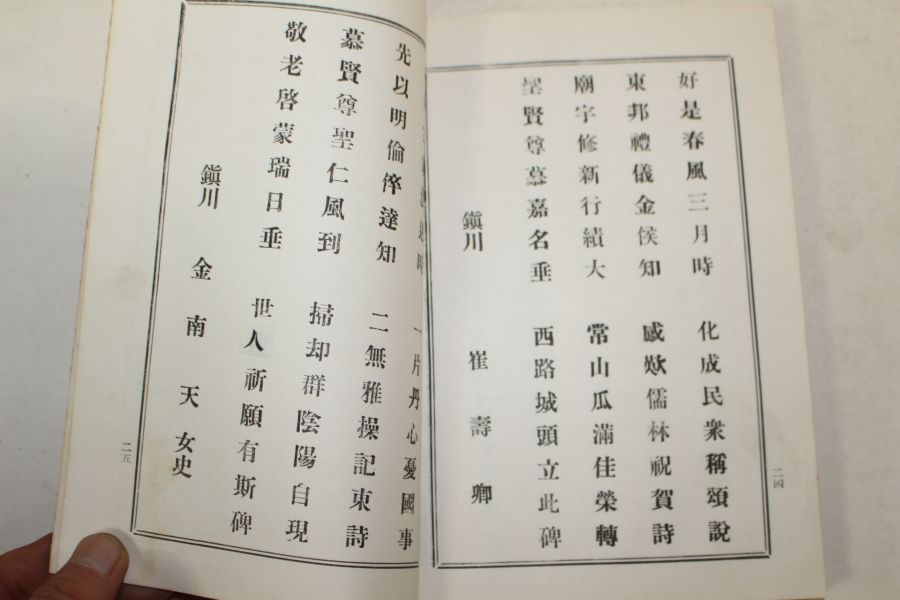 好是春風三月時 化成民衆稱頌說
東邦禮儀金侯知 感歎儒林祝賀詩
廟宇修新行績大 常山瓜滿佳榮轉
聖賢尊慕嘉名垂 西路城頭立此碑
鎭川 崔壽卿
二四
一片丹心憂國事
先以明倫倅達知 二無雅操記東詩
慕賢尊聖仁風到 掃却群陰陽自現
敬老啓蒙瑞日垂 世人祈願有斯碑
鎭川 金南天女史
二五